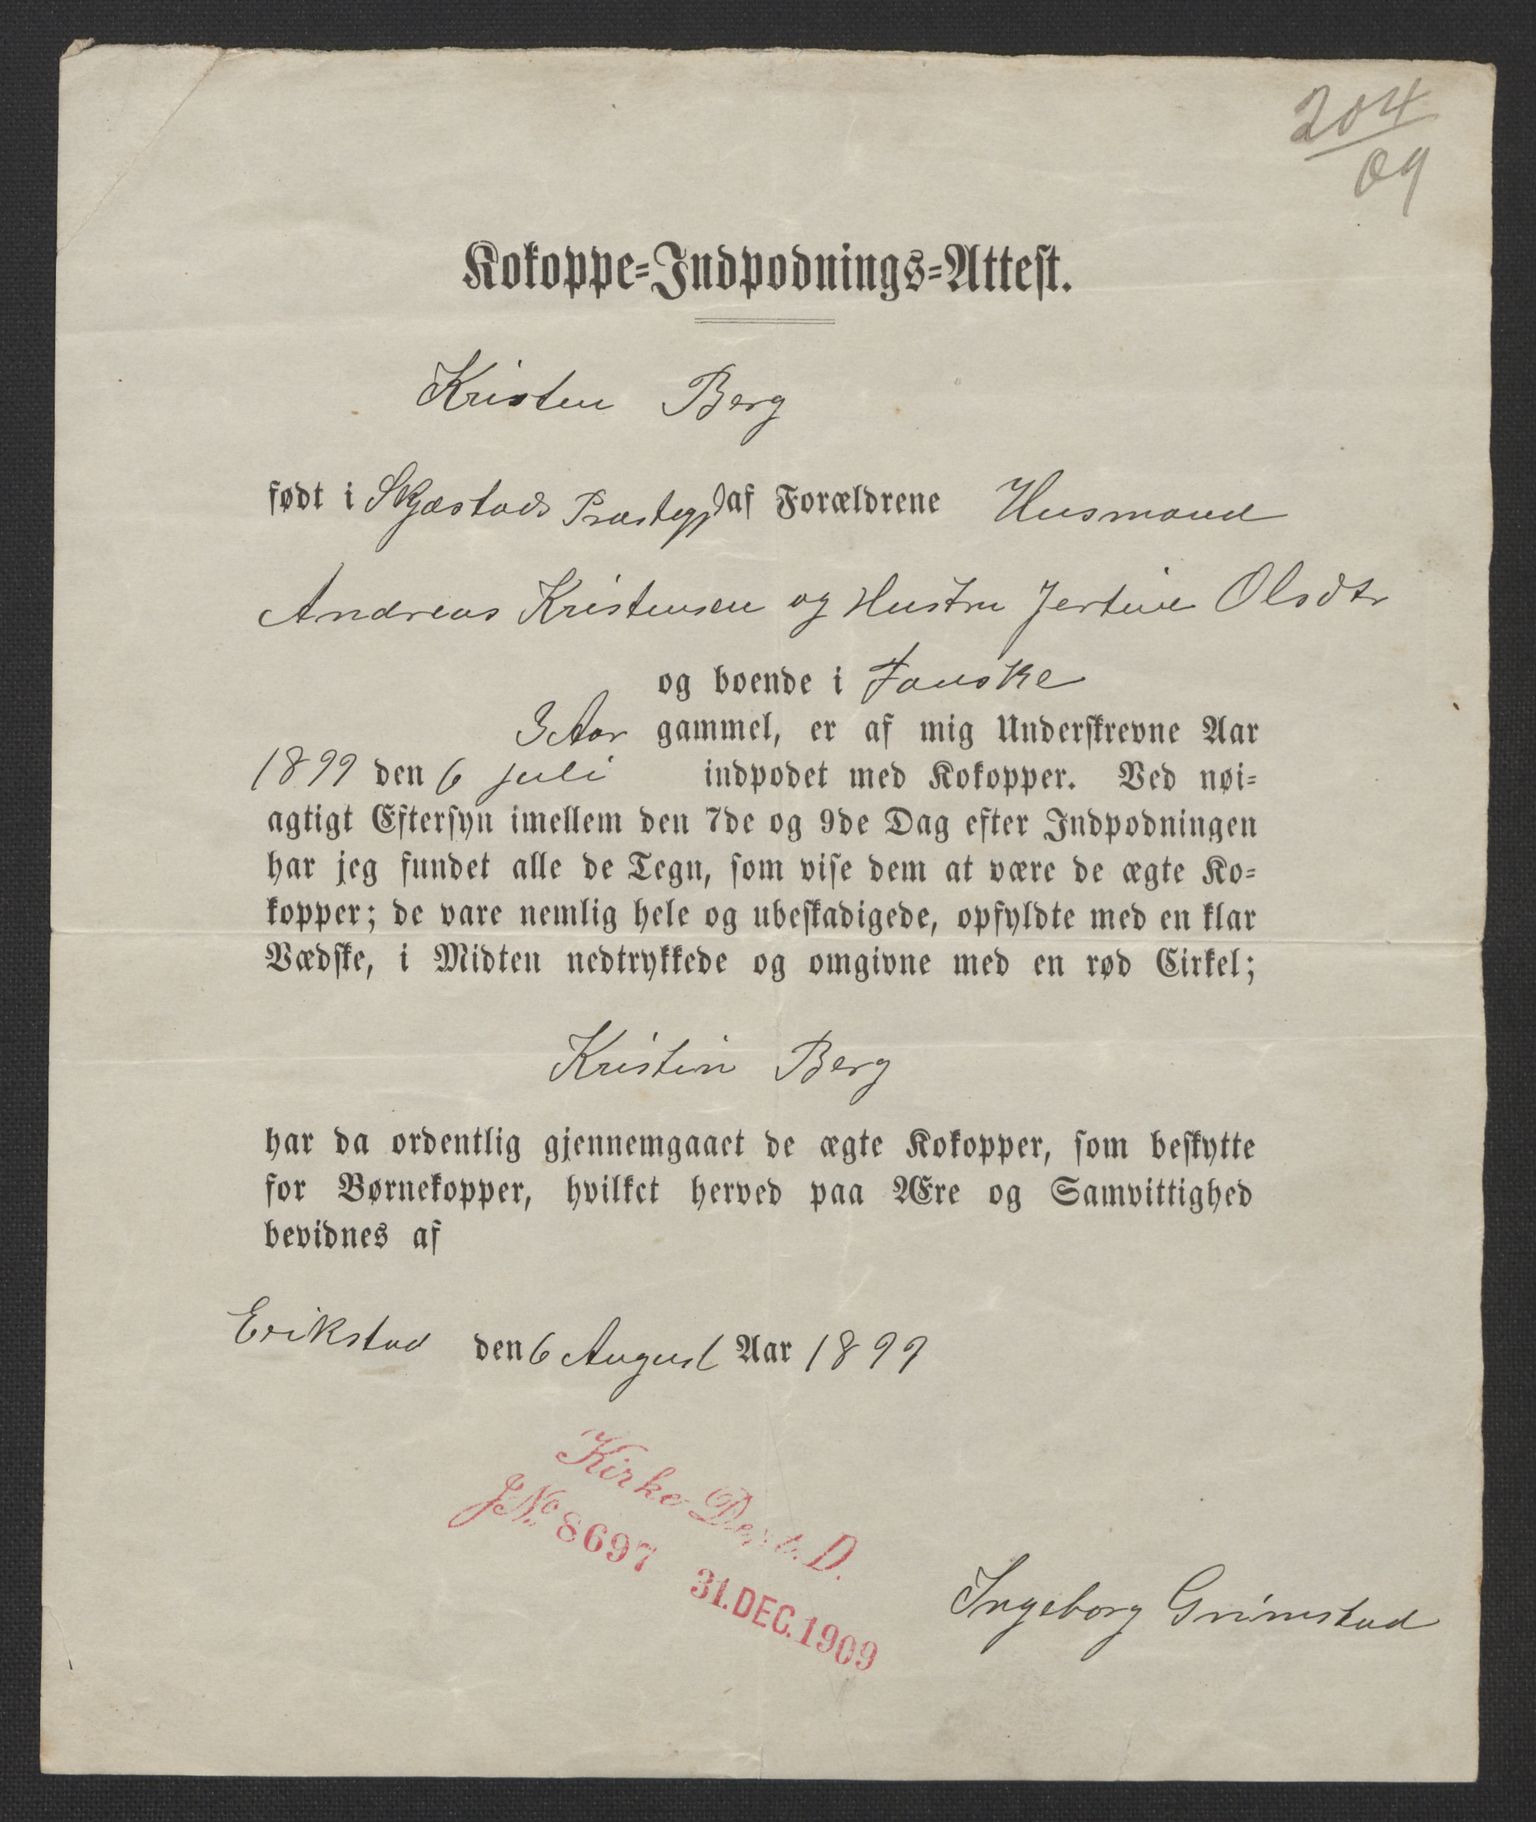 204
09
Kokoppe-Indpodnings-Attest.
Kristen Berg
født i Skjæstads Præstegj af Forældrene Husmand
Andreas Kristensen og Hustru Jertine Olsdtr
og boende i Fauske
3 Aar gammel, er af mig Underskrevne Aar
1899 den 6 juli indpodet med Kokopper. Ved nøi-
agtigt Eftersyn imellem den 7de og 9de Dag efter Indpodningen
har jeg fundet alle de Tegn, som vise dem at være de ægte Ko-
kopper; de vare nemlig hele og ubeskadigede, opfyldte med en klar
Vædske, i Midten nedtrykkede og omgivne med en rød Cirkel;
Kristin Berg
har da ordentlig gjennemgaaet de ægte Kokopper, som beskytte
for Børnekopper, hvilket herved paa Ære og Samvittighed
bevidnes af
Erikstad den 6 August Aar 1899
Kirke-Dept. D.
J.No 8697 31.DEC.1909
Ingeborg Grimstad